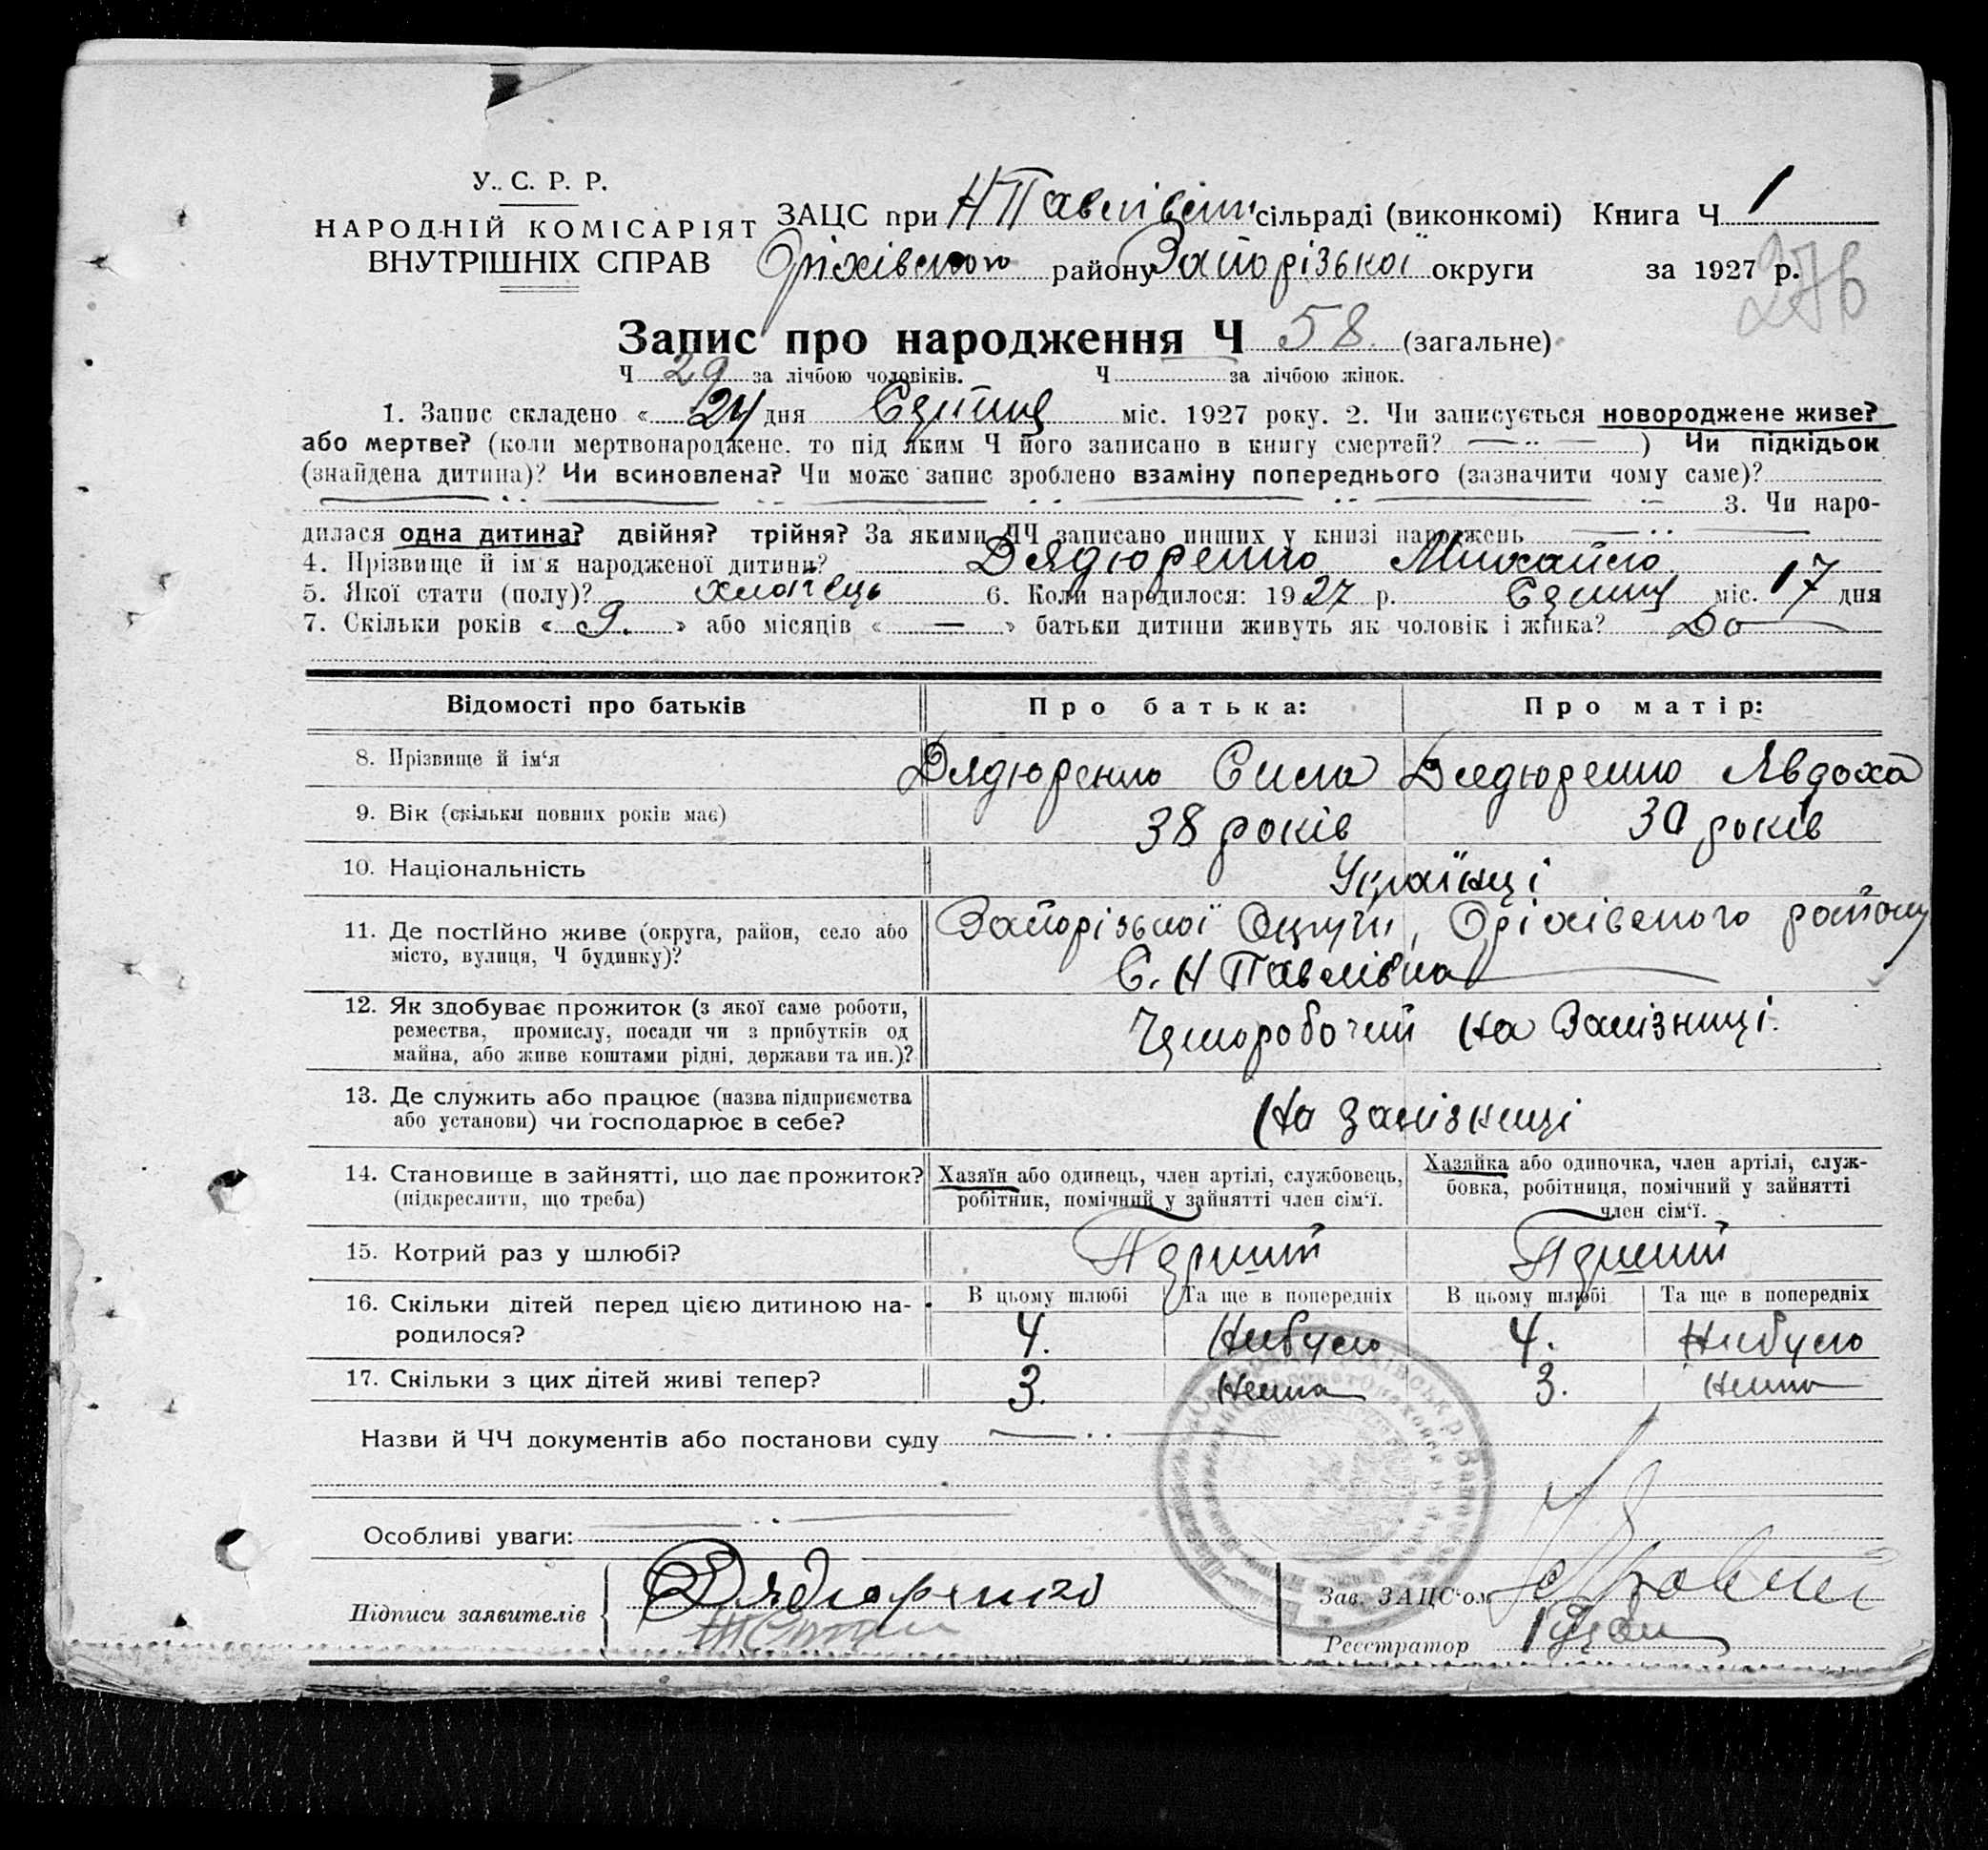 У. С. Р. Р.
НАРОДНІЙ КОМІСАРІЯТ
ВНУТРІШНІХ СПРАВ
ЗАЦС при Н Павлівськ сільраді (виконкомі) Книга Ч 1
Оріхівського району Запорізької округи за 1927 р.
276
Запис про народження Ч 58 (загальне)
Ч 29 за лічбою чоловіків. Ч за лічбою жінок.
1. Запис складено « 24 дня Січня міс. 1927 року. 2. Чи записується новороджене живе?
або мертве? (коли мертвонароджене, то під яким Ч його записано в книгу смертей? — ·· — ) Чи підкідьок
(знайдена дитина)? Чи всиновлена? Чи може запис зроблено взаміну попереднього (зазначити чому саме)?
3. Чи наро-
дилася одна дитина? двійня? трійня? За якими ЧЧ записано инших у книзі народжень — ·· —
4. Прізвище й ім'я народженої дитини? Дядюренко Михайло
5. Якої стати (полу)? хлопець 6. Коли народилося: 1927 р. Січня міс. 17 дня
7. Скільки років « 9. » або місяців « — » батьки дитини живуть як чоловік і жінка? До
Відомості про батьків Про батька: Про матір:
8. Прізвище й ім‘я Дядюренко Сила Дядюренко Явдоха
9. Вік (скільки повних років має) 38 років 30 років
10. Національність Українці
11. Де постійно живе (округа, район, село або Запорізької Округи, Оріхівського району
місто, вулиця, Ч будинку)? С. Н Павлівка
12. Як здобуває прожиток (з якої саме роботи,
ремества, промислу, посади чи з прибутків од
майна, або живе коштами рідні, держави та ин.)? Чорноробочий на Залізниці.
13. Де служить або працює (назва підприємства
або установи) чи господарює в себе? На залізниці
14. Становище в зайнятті, що дає прожиток?
(підкреслити, що треба)
Хазяїн або одинець, член артілі, службовець,
робітник, помічний у зайнятті член сім‘ї.
Хазяйка або одиночка, член артілі, служ-
бовка, робітниця, помічний у зайнятті
член сім‘ї.
15. Котрий раз у шлюбі? Перший Перший
В цьому шлюбі Та ще в попередніх В цьому шлюбі Та ще в попередніх
16. Скільки дітей перед цією дитиною на-
родилося? 4. Небуло 4. Небуло
17. Скільки з цих дітей живі тепер? 3. Нема 3. Нема
Назви й ЧЧ документів або постанови суду — ·· —
Особливі уваги:
Підписи заявителів Дядюренко
Зав. ЗАЦС‘ом
Реєстратор